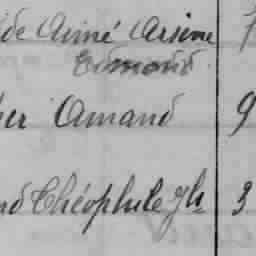 de Aimé Arsène 7
Edmond
er Amand 9
nd Théophile Jh 3